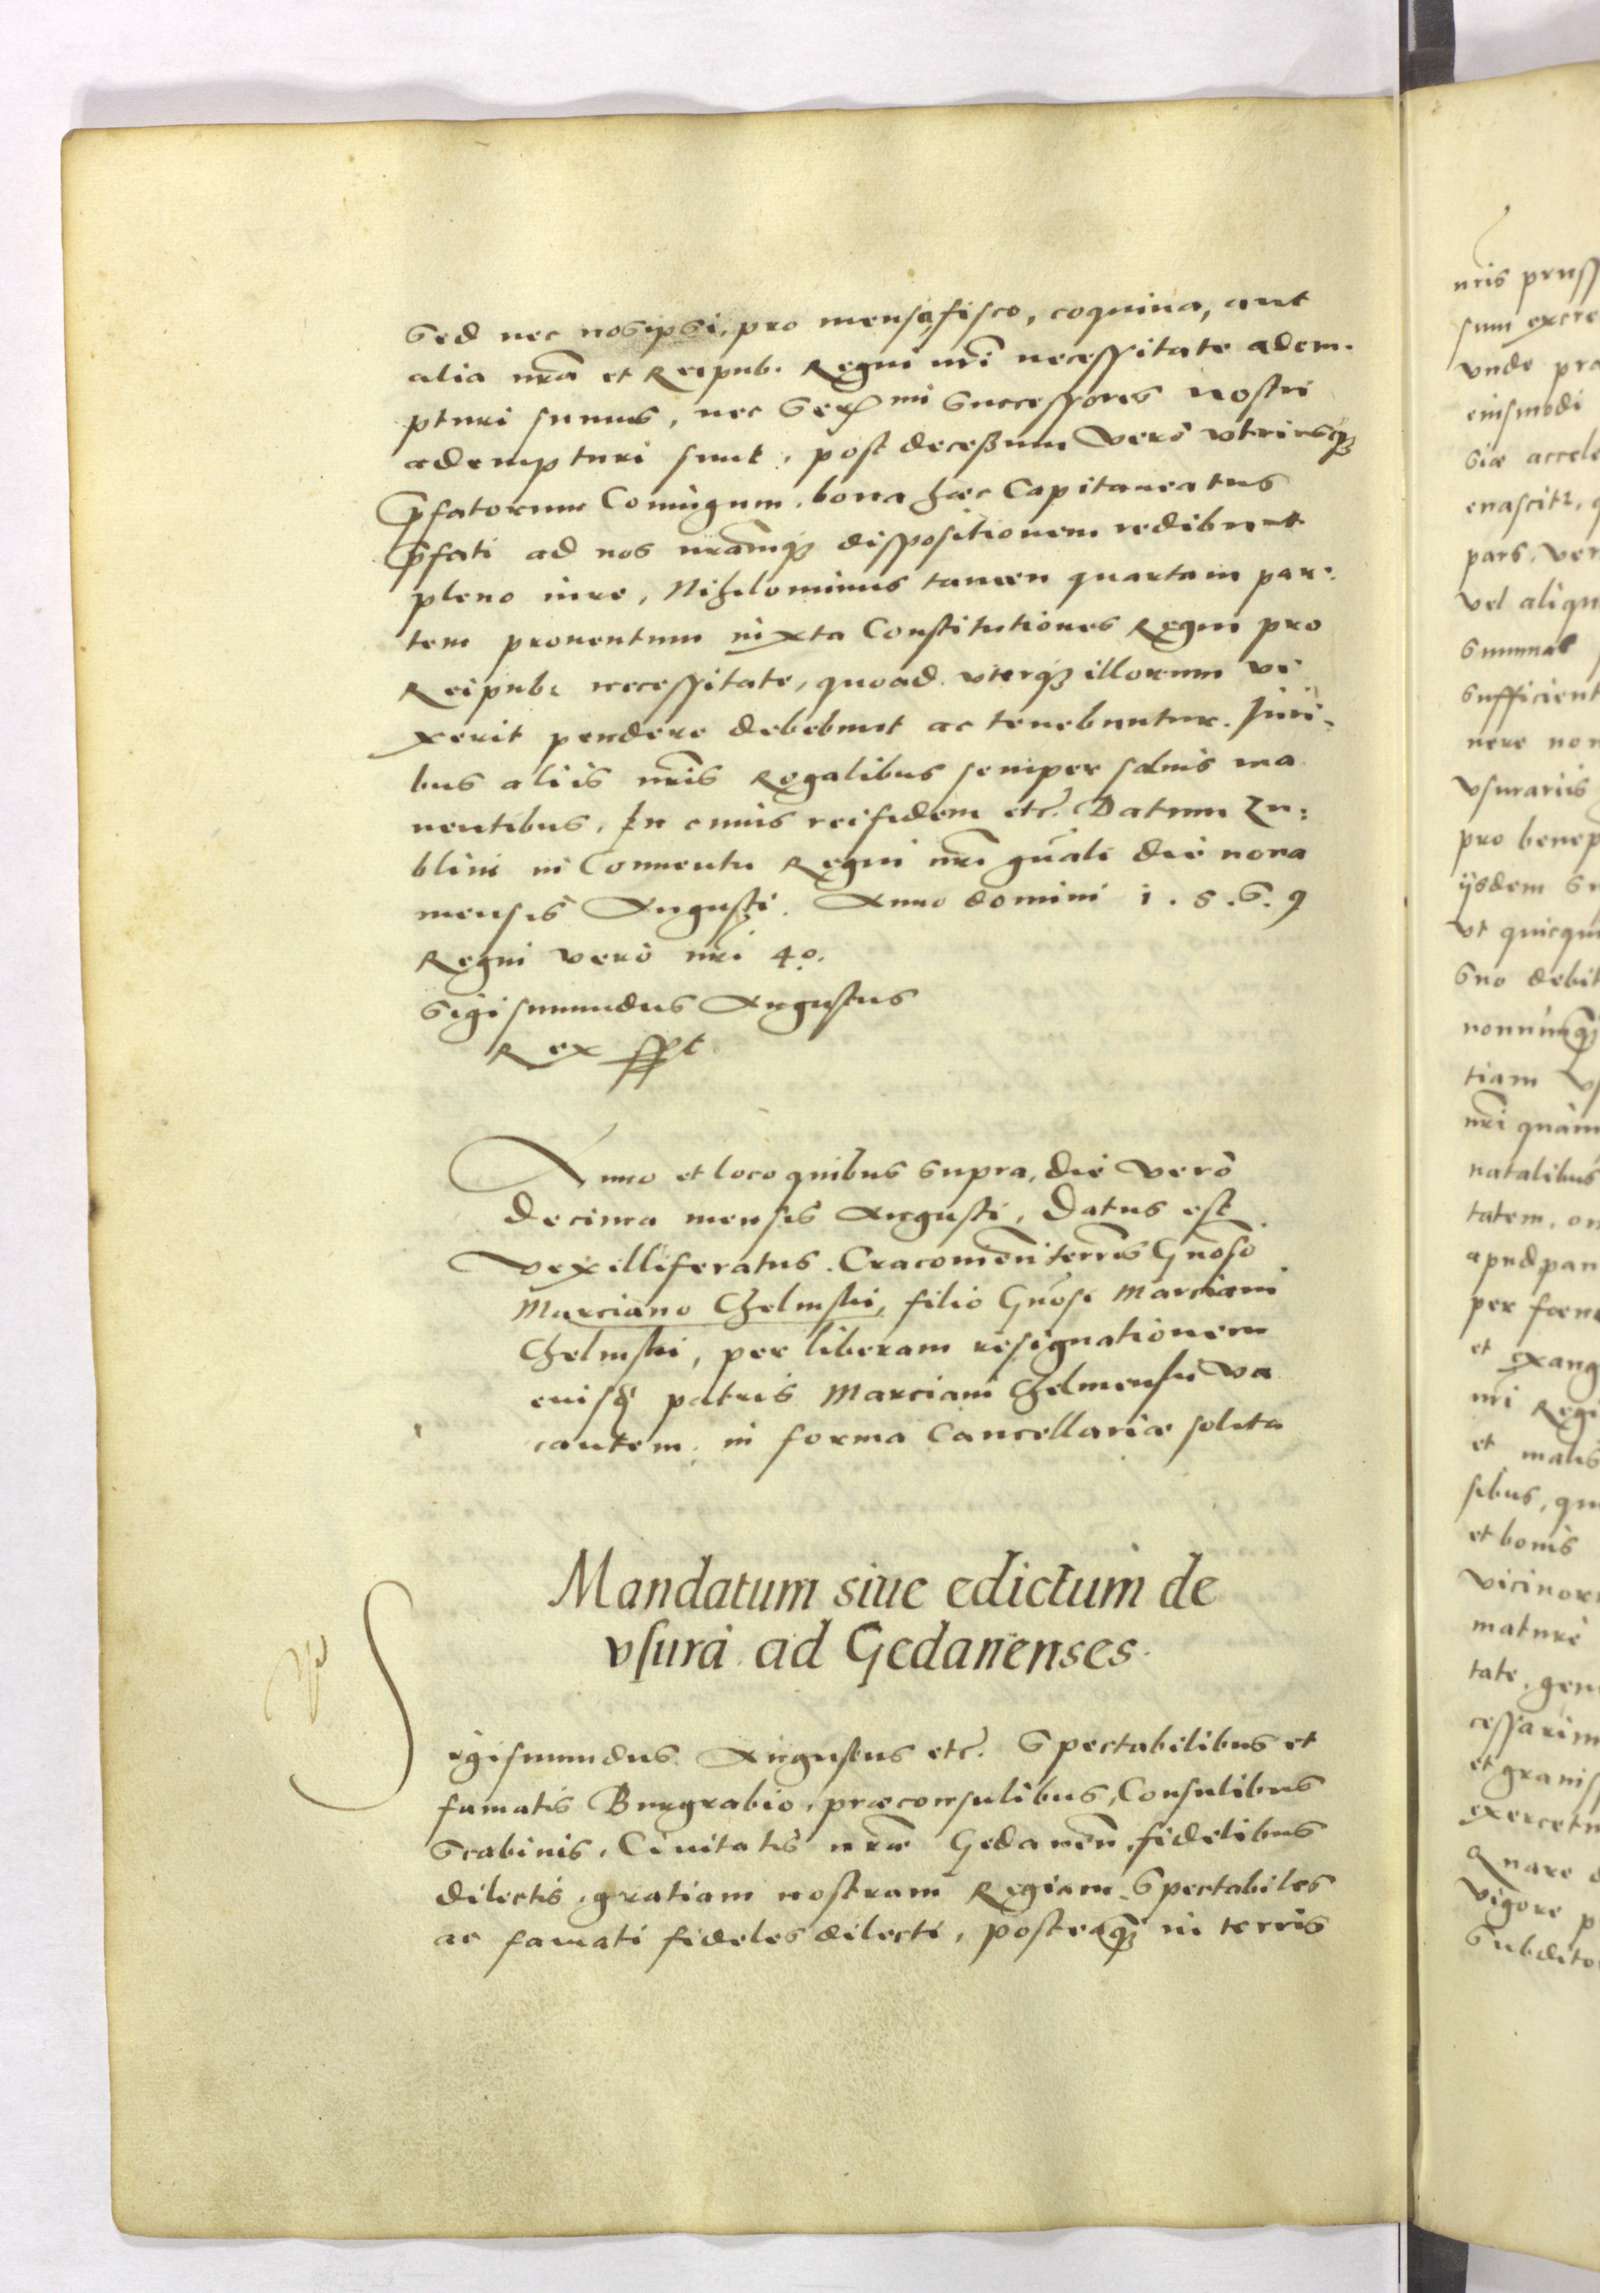 Sed nec nos ipsi, pro mensa, fisco, coquina, aut
alia nra et Reipub. Regni nri necessitate adem-
pturi sumus, nec Sermi Successores nostri
adempturi sunt, post decessum vero utriusq3
pfatorum Coniugum, bona haec Capitaneatus
pfati ad nos nramq3 dispositionem redibunt
pleno iure, Nihilominus tamen quartam par-
tem prouentum iuxta Constitutiones Regni pro
Reipub: necessitate, quoad uterq3 illorum vi
xerit pendere debebunt ac tenebuntur. Juri-
bus aliis nris Regalibus semper saluis ma
nentibus. In cuius rei fidem etc. Datum Lu-
blini in Conuentu Regni nri gnali die nona
mensis Augusti. Anno domini 1.5.6.9
Regni vero nri 40.
Sigismundus Augustus
Rex sspt

Anno et loco quibus supra, die vero
decima mensis Augusti, Datus est
vexilliferatus Cracouien terris Gnoso
Marciano Chelmski, filio Gnosi Marciani
Chelmski, per liberam resignationem
eiusq patris Marciani Chelmensij va
cantem, in forma Cancellariae solita

Mandatum siue edictum de
vsura ad Gedanenses.

Sigismundus Augustus etc. Spectabilibus et
famatis Burgrabio, praeconsulibus, Consulibus
Scabinis, Ciuitatis nrae Gedanen, fidelibus
dilectis, gratiam nostram Regiam. Spectabiles
ac famati fideles dilecti, posteaq3 in terris

nris pruss
sum excre
vnde pra
eiusmodi
siae accele
enascitr, q
pars, ver
vel aliqu
summae
sufficient
nere non
vsurariis
pro benep
ijsdem su
vt quicqui
suo debit
nonnumq3
tiam vs
nri quam
natalibus
tatem, om
apud pau
per foen
et exang
nri Regi
et malis
sibus, qui
et bonis
vicinor
mature
tate, gen
cessarim
et grauis
exercetu
Quare
vigore p
Subdito